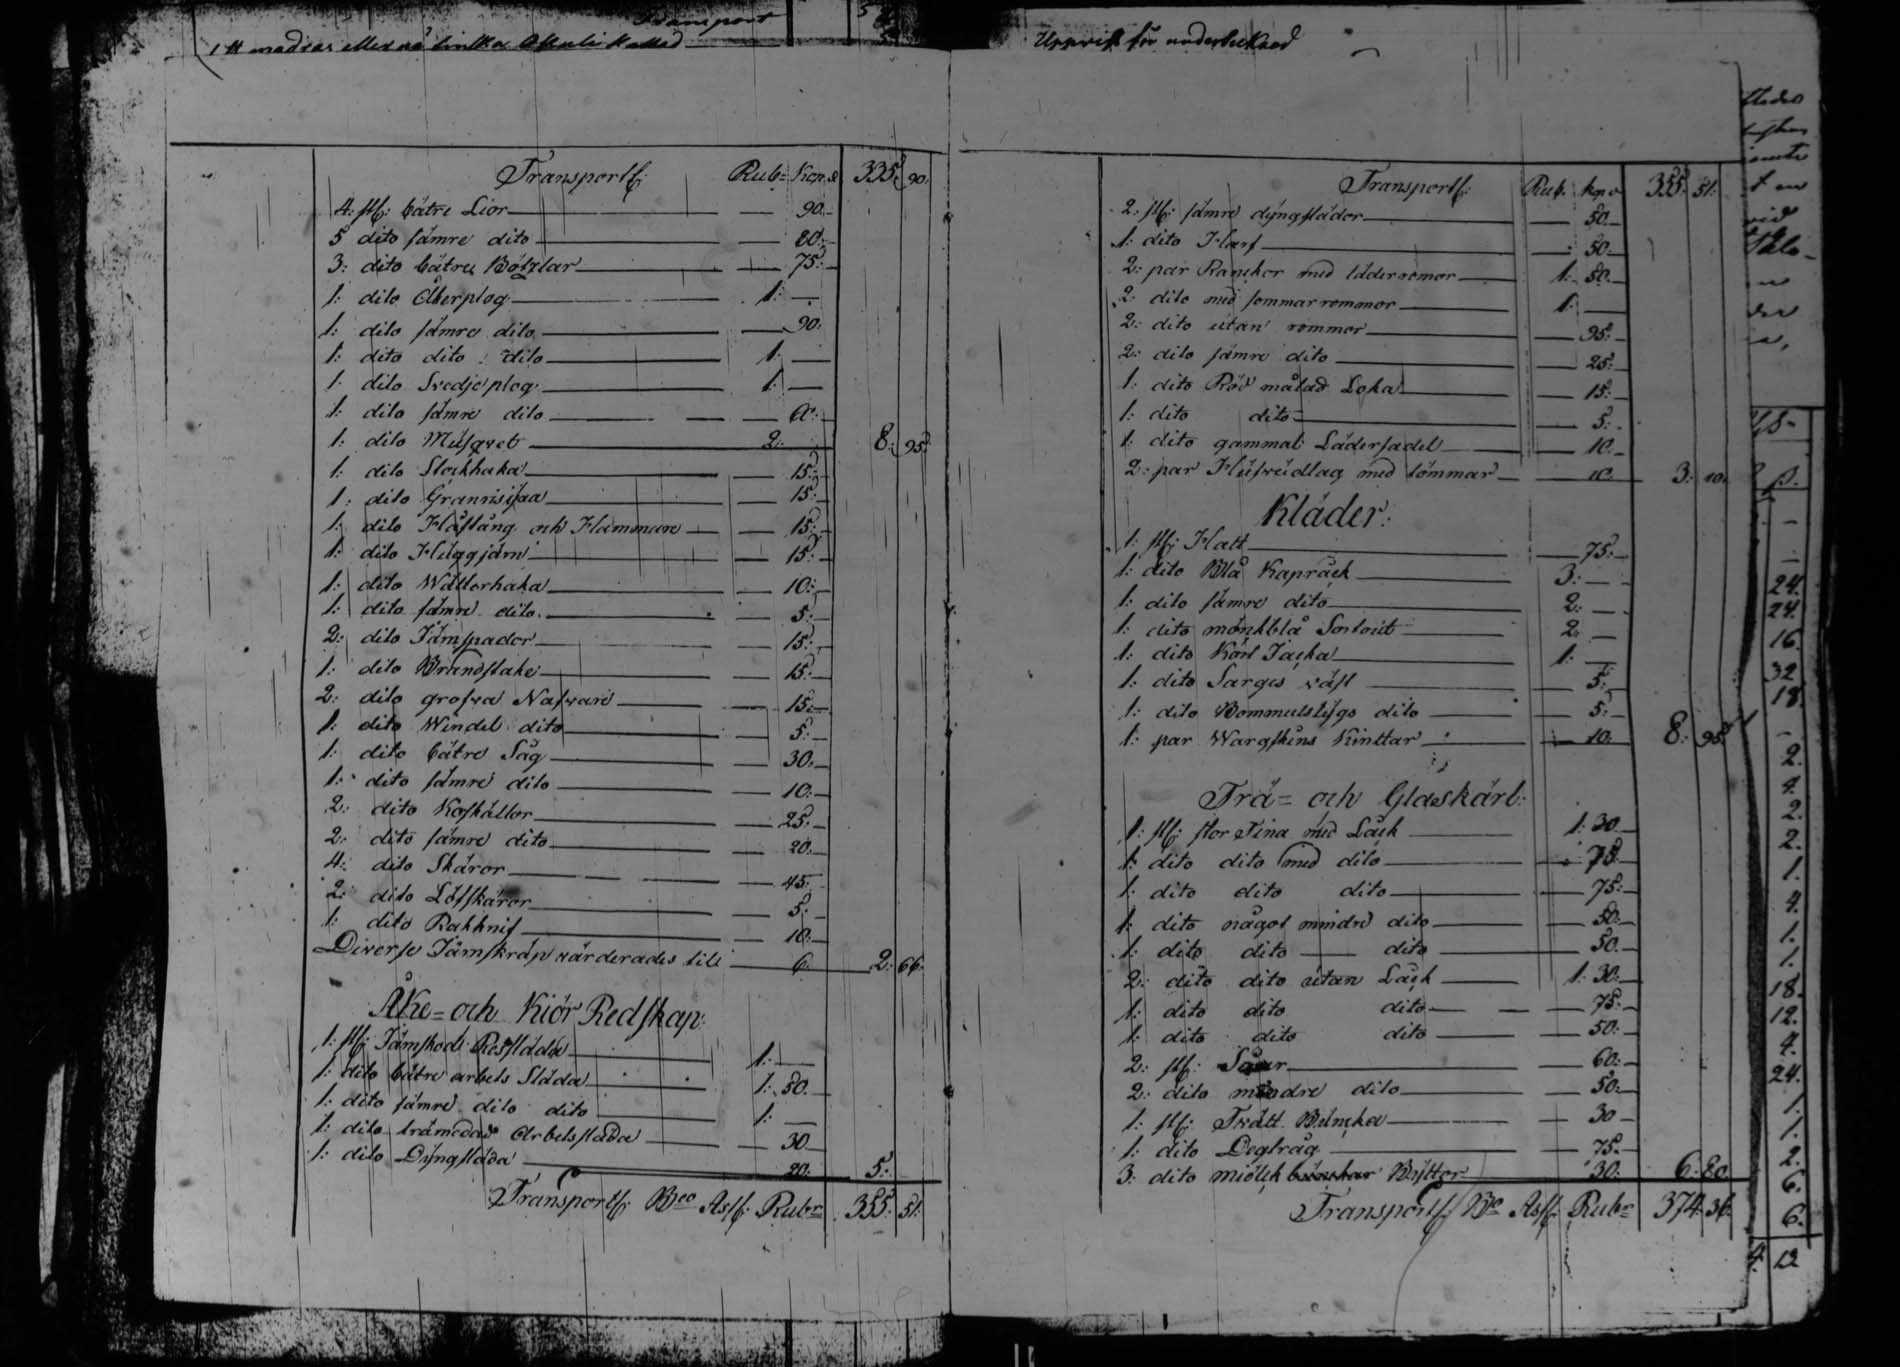 Transport
Transport: Rub: Kop:r 335: 90.
4: st: bätre Lior 90.
5 dito sämre dito 80.
3: dito bätre Bötzlar 75:
1: dito Åkerplog 1:
1: dito sämre dito 90.
1: dito dito dito 1:
1: dito Svedje plog 1:
1: dito sämre dito 60:
1: dito Musqvet 2: 8: 95.
1: dito Stockhaka 15:
1: dito Granrisyxa 15:
1: dito Flåstång och Flammare 15:
1: dito Huggjärn 15:
1: dito Wätterhaka 10:
1: dito sämre dito 5:
2: dito Järnspador 15:
1: dito Brandstake 15:
2: dito grofva Nafvare 15:
1: dito Windel dito 5:
1: dito bätre Såg 30:
1: dito sämre dito 10:
2: dito Koskällor 25:
2: dito sämre dito 20:
4: dito Skäror 45:
2: dito Löfskäror 5:
1: dito Rakknif 10:
Diverse Järnskråp värderades till 6. 2: 66.
Åke= och Kiör Redskap:
1: st: Järnskodd Resslädhe 1:
1: dito bätre arbets Släda 1: 50.
1: dito sämre dito dito 1:
1: dito trämedad Arbetsläda 30
1: dito Dyngsläda 20: 5:
Transport: Bco Ass: Rubr 355: 51.
Transport: Rub: kop:r 355: 51:
2: st: sämre dyngslädor 50
1: dito Harf 50:
2: par Ranckor med läderremor 1: 50.
2: dito med sommar rommor 1:
2: dito utan rommor 95:
2: dito sämre dito 25:
1: dito Röd målad Loka 15:
1: dito dito 5:
1: dito gammal Lädersadel 10.
2: par Hufvudlag med tömmar 10: 3: 10.
Kläder:
1: st: Hatt 75:
1: dito Blå Kapråck 3:
1: dito sämre dito 2:
1: dito mörkblå Sortout 2:
1: dito Kort Jacka 1:
1: dito Sarges väst 5:
1: dito Bommulstygs dito 5:
1: par Wargskins Kinttar 10: 8: 95.
Trä= och Glaskärl:
1: st: stor Tina med Låck 1: 30
1: dito dito med dito 75
1: dito dito dito 75:
1: dito något mindre dito 50:
1: dito dito dito 50.
2: dito dito utan Låck 1: 30:
1: dito dito dito 75:
1: dito dito dito 50:
2: st: Såar 60:
2: dito mindre dito 50:
1: st: Tvätt Buncka 30
1: dito Degtråg 75.
3: dito miölck Byttor 30: 6: 80.
Transport: Bco Ass: Rubr 374: 36.
24.
24.
16.
32
18.
2.
4.
2.
2.
1.
4.
1.
1.
18.
12.
4.
24.
1.
1.
2.
6.
6.
4. 12